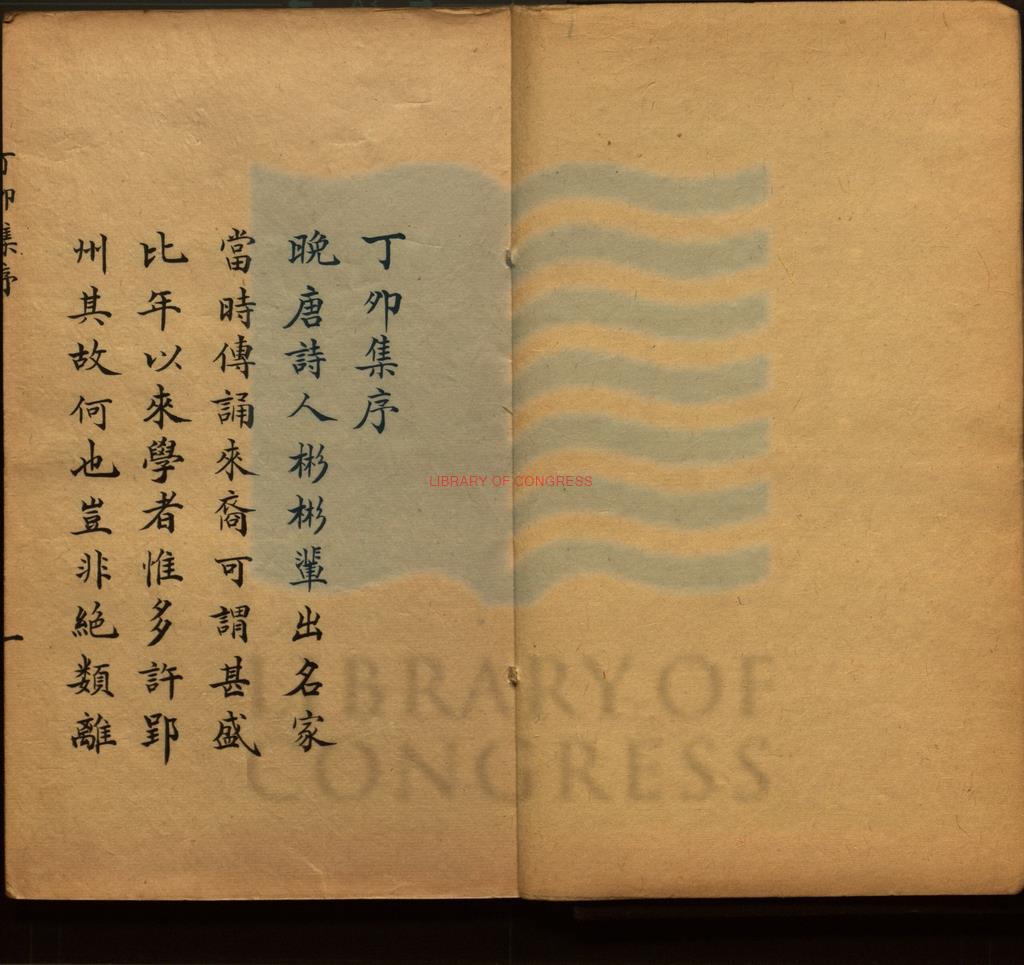 丁卯集序
晩唐詩人彬彬軰出名家
當時傳誦來裔可謂甚盛
比年以來學者惟多許郢
州其故何也豈非絶類離
丁卯集序
一
LIBRARY OF CONGRESS
LIBRARY OF
CONGRESS